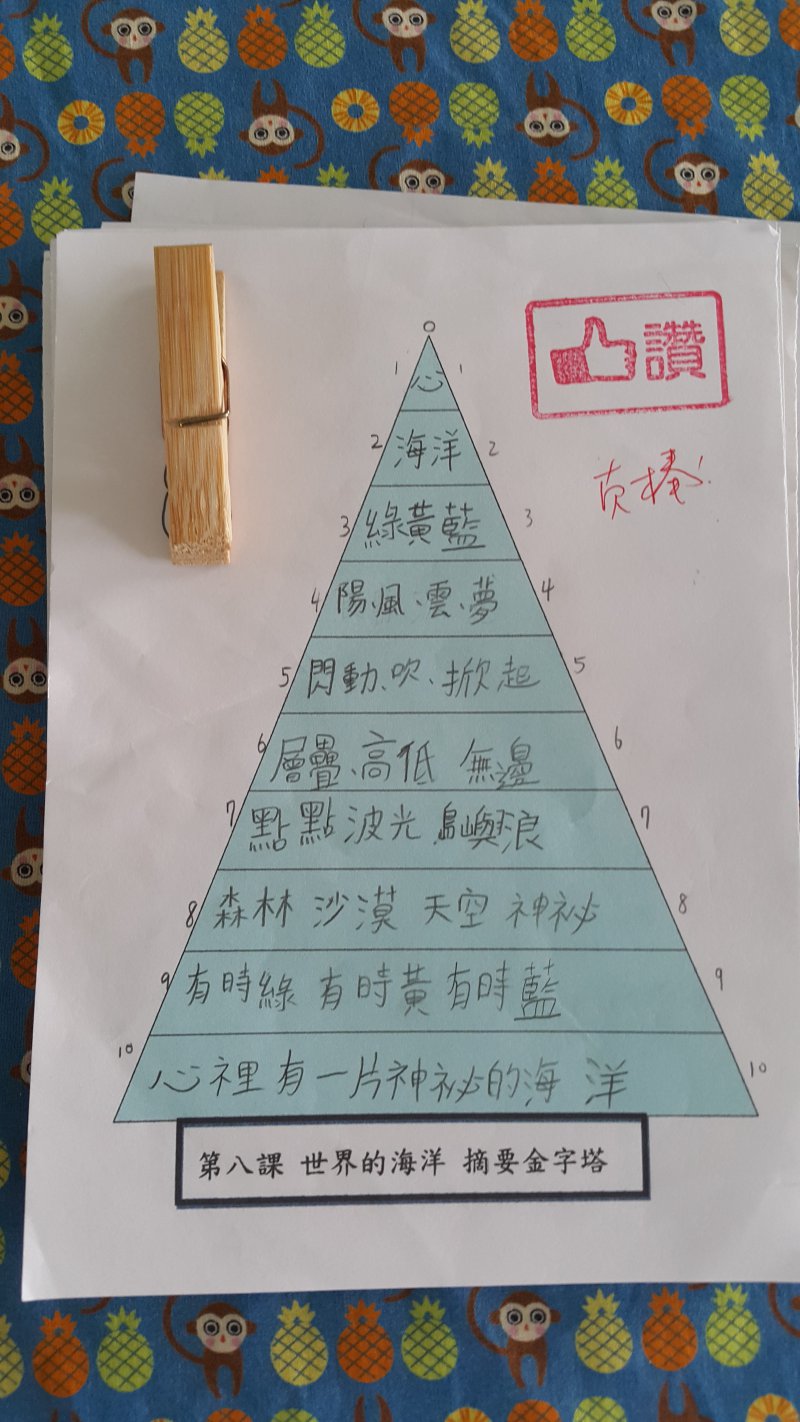 讚
真棒!
0
1 心 1
2 海洋 2
3 綠黃藍 3
4 陽、風、雲、夢 4
5 閃動、吹、掀起 5
6 層疊、高低 無邊 6
7 點點波光 島嶼浪 7
8 森林 沙漠 天空 神祕 8
9 有時綠 有時黃 有時藍 9
10 心裡有一片神祕的海洋 10
第八課 世界的海洋 摘要金字塔